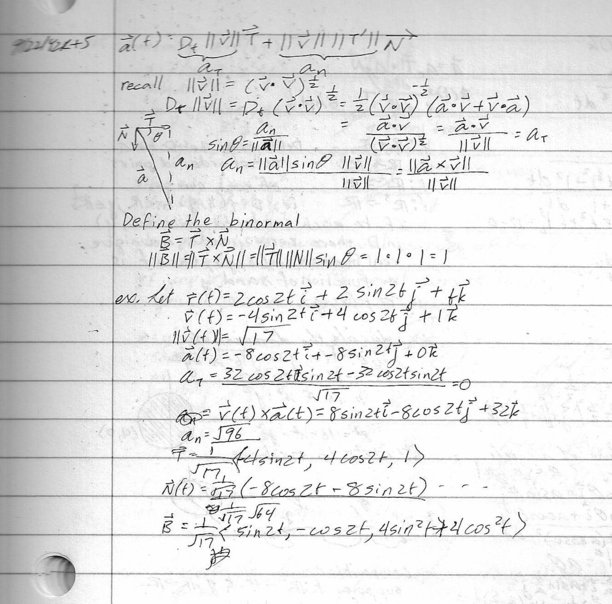 a⃗(t) = D_t ||v⃗|| T⃗ + ||v⃗|| ||T⃗'|| N⃗
a_T a_n
recall ||v⃗|| = (v⃗·v⃗)^½
D_t ||v⃗|| = D_t (v⃗·v⃗)^½ = ½(v⃗·v⃗)^-½ (a⃗·v⃗+v⃗·a⃗)
= a⃗·v⃗/(v⃗·v⃗)^½ = a⃗·v⃗/||v⃗|| = a_T
T⃗ N⃗ θ a⃗ a_n
sinθ = a_n/||a⃗||
a_n = ||a⃗|| sinθ ||v⃗||/||v⃗|| = ||a⃗ × v⃗||/||v⃗||
Define the binormal
B⃗ = T⃗ × N⃗
||B⃗|| = ||T⃗ × N⃗|| = ||T⃗|| ||N⃗|| sin θ = 1·1·1 = 1
ex. Let r⃗(t) = 2cos2t i⃗ + 2 sin2t j⃗ + t k⃗
v⃗(t) = -4sin2t i⃗ + 4 cos2t j⃗ + 1 k⃗
||v⃗(t)|| = √17
a⃗(t) = -8cos2t i⃗ + -8sin2t j⃗ + 0k⃗
a_T = (32 cos2t sin2t - 32 cos2t sin2t)/√17 = 0
= v⃗(t) × a⃗(t) = 8sin2t i⃗ - 8cos2t j⃗ + 32k⃗
a_n = √96
T⃗ = 1/√17 ⟨-4sin2t, 4cos2t, 1⟩
N⃗(t) = 1/√17 (-8cos2t - 8sin2t) - - -
1/√17 √64
B⃗ = 1/√17 ⟨sin2t, -cos2t, 4sin²t + 4cos²t⟩